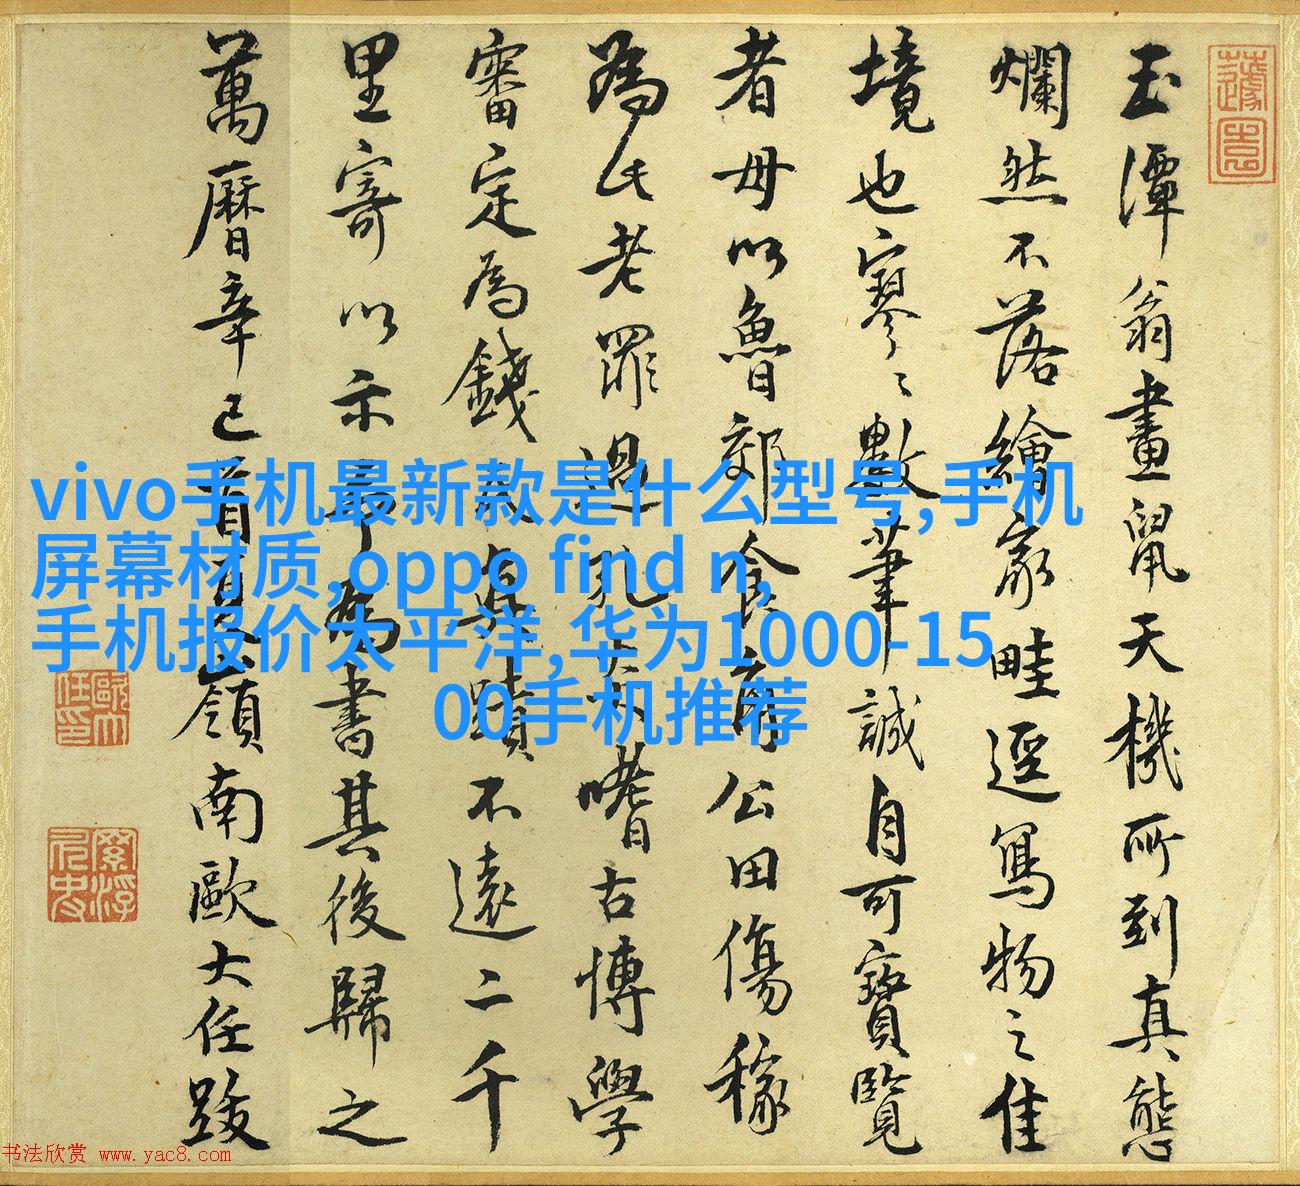 玉潭翁畫鼠天機所到真態
爛然不落繪家畦逕寫物之佳
境也寥〻數筆誠自可寶覽
者毋以魯郊食角公田傷稼
為氏老罪過孔炎嗜古博學
審定為錢真蹟不遠二千
里寄以示為書其後歸之
萬曆辛巳首夏嶺南歐大任跋
歐大任印
vivo手机最新款是什么型号,手机
屏幕材质,oppo find n,
手机报价太平洋,华为1000-15
00手机推荐
书法欣赏 www.yac8.com